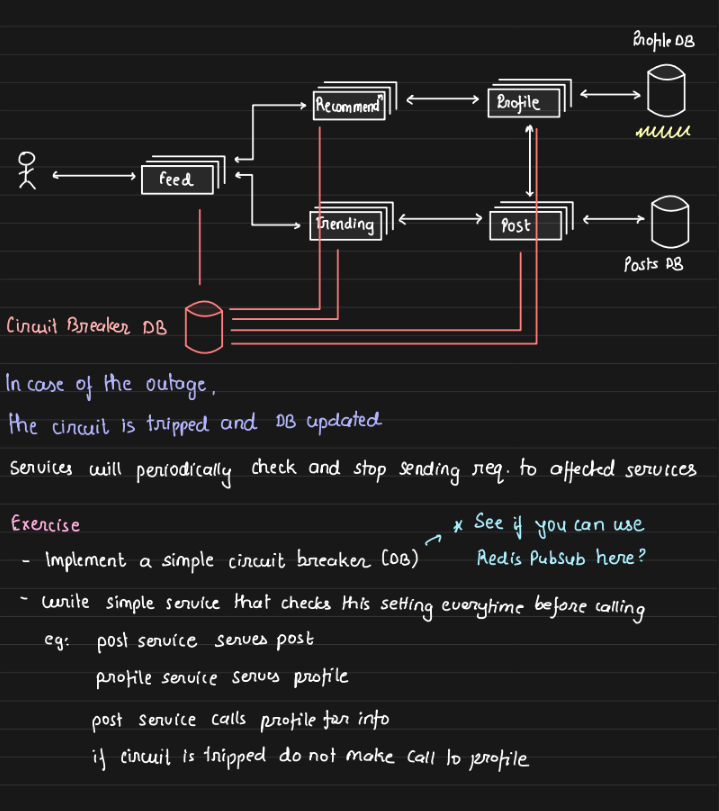 Profile DB
Recommendⁿ
Profile
Feed
Trending
Post
Posts DB
Circuit Breaker DB
In case of the outage,
the circuit is tripped and DB updated
Services will periodically check and stop sending req. to affected services
Exercise
* See if you can use
- Implement a simple circuit breaker (DB)
Redis PubSub here?
- write simple service that checks this setting everytime before calling
eg: post service serves post
profile service serves profile
post service calls profile for info
if circuit is tripped do not make call to profile